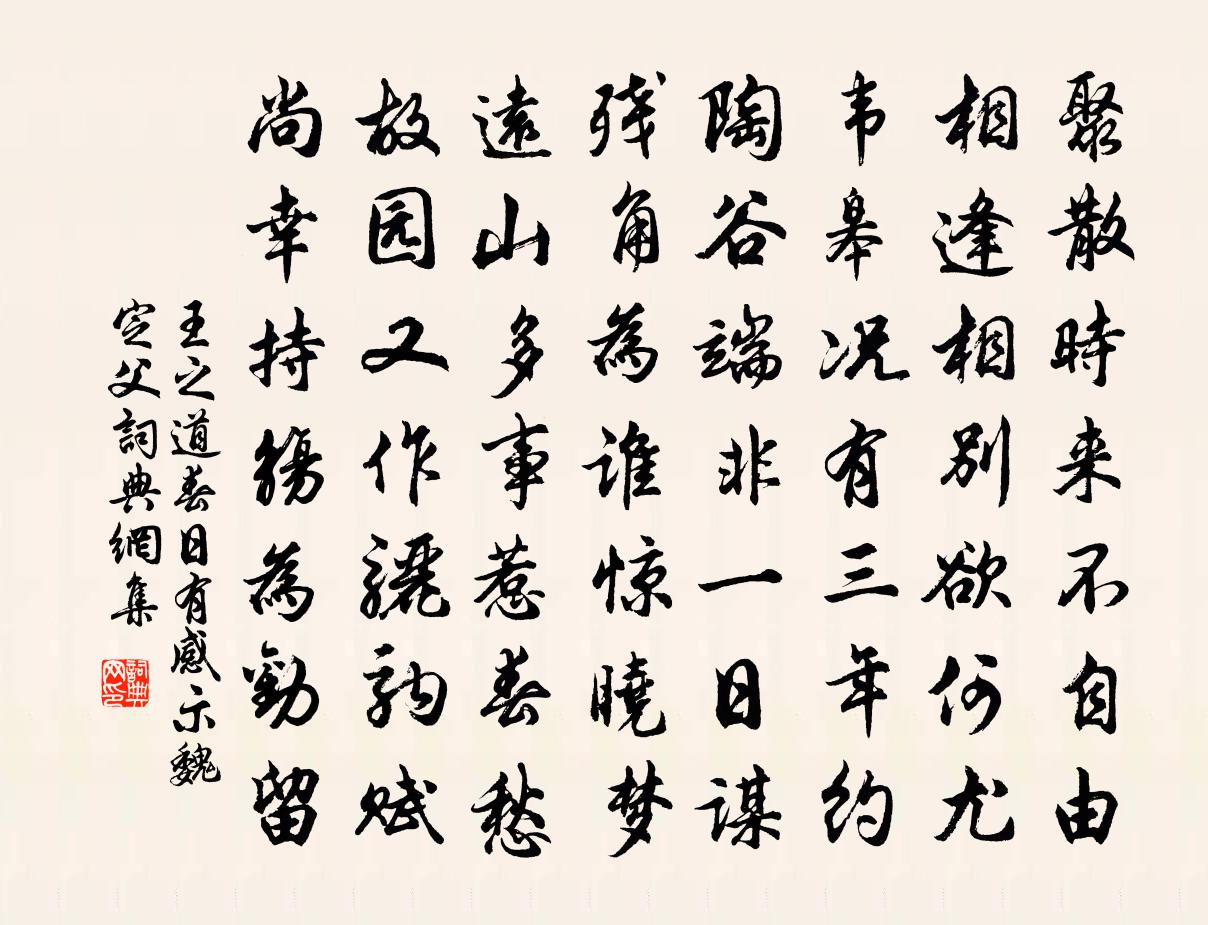 聚散時来不自由
相逢相别欲何尤
韦皋况有三年约
陶谷端非一日谋
残角為谁惊曉梦
遠山多事惹春愁
故园又作驪駒赋
尚幸持觴為勸留
王之道春日有感示魏
定父詞典網集
詞典网印